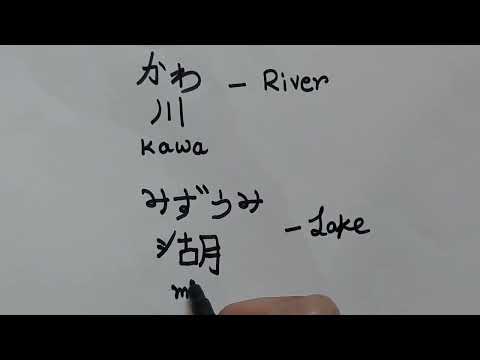 かわ - River
川
Kawa
みずうみ - Lake
湖
m